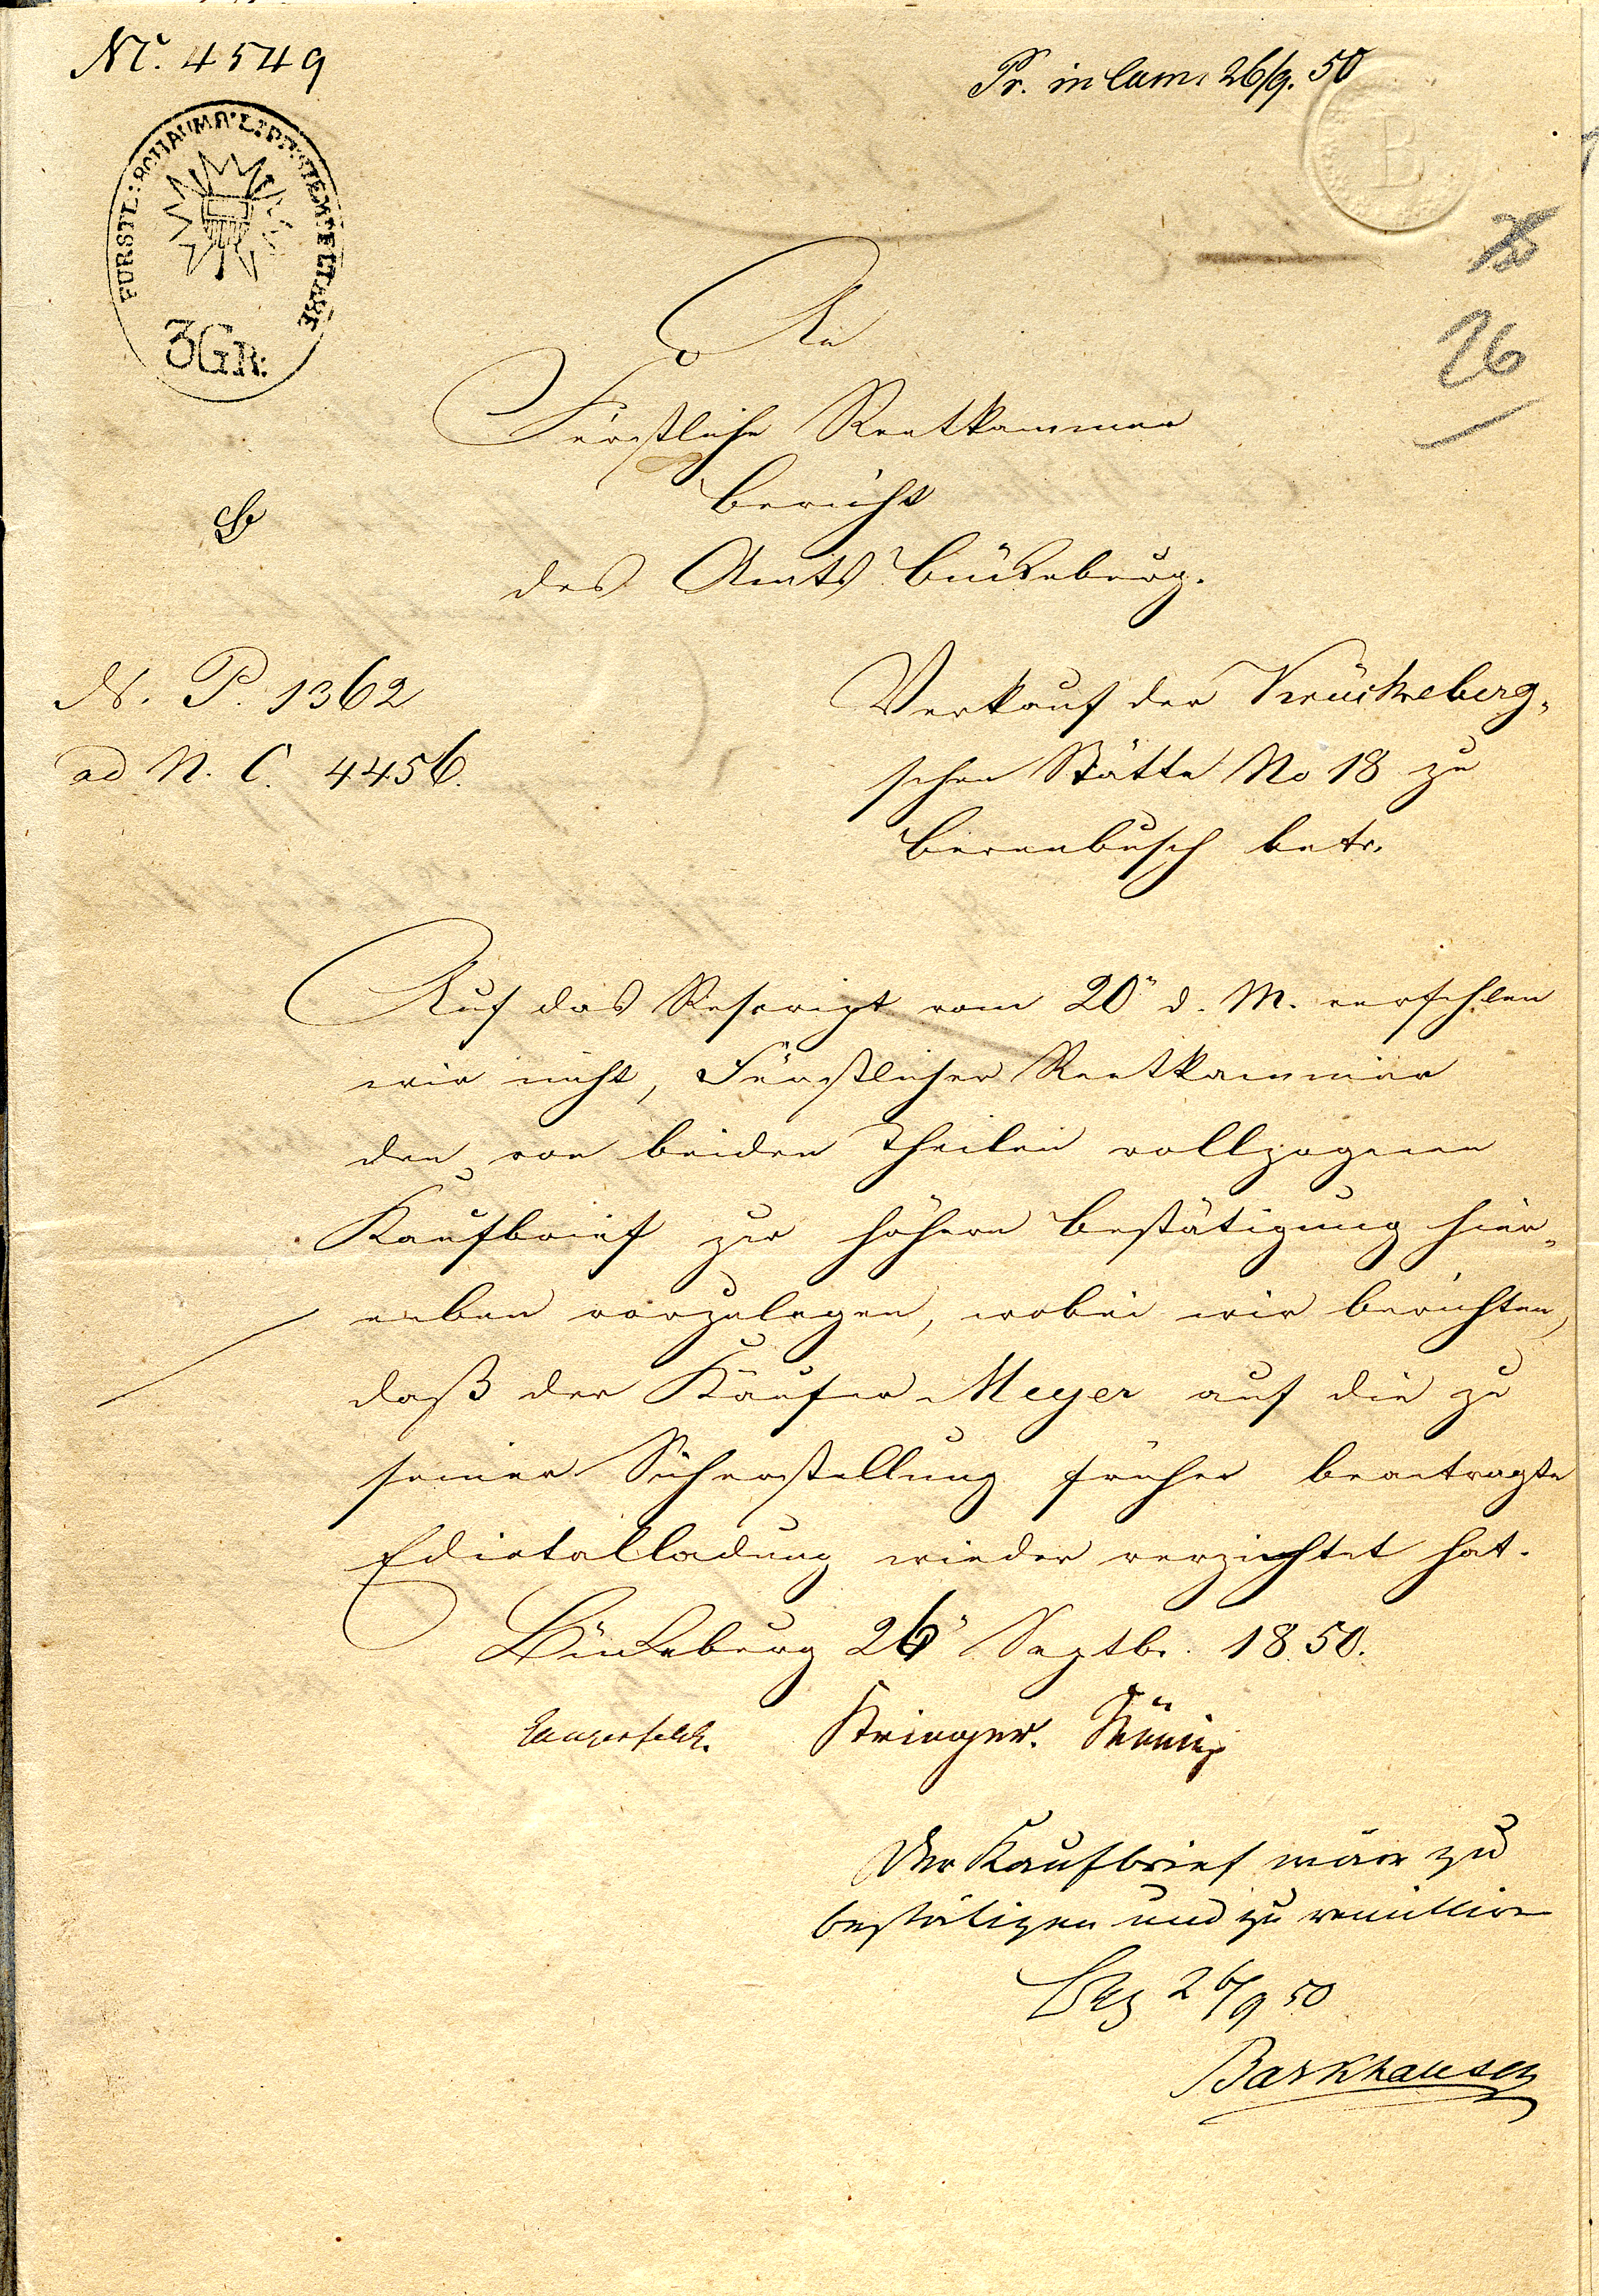 Nr. 4549
Pr. in Cam. 26/9. 50
FÜRSTL: SCHAUMB: LIPP: STEMPELTAXE
3GR:
B
26
An
Fürstliche Rentkammer
Bericht
des Amts Bückeburg.
N. P. 1362
ad N. C. 4456.
Verkauf der Krückeberg-
schen Stätte No 18 zu
Berenbusch betr.
Auf das Rescript vom 20n d. M. verfehlen
wir nicht, Fürstlicher Rentkammer
den von beiden Theilen vollzogenen
Kaufbrief zur höhern Bestätigung hier-
neben vorzulegen, wobei wir berichten,
daß der Käufer Meyer auf die zu
seiner Sicherstellung früher beantragte
Edictalladung wieder verzichtet hat.
Bückeburg 26n Septbr. 1850.
Langerfeldt. Kringer. König
Der Kaufbrief wäre zu
bestätigen und zu remittiren
Bbg 26/9 50
Barkhausen